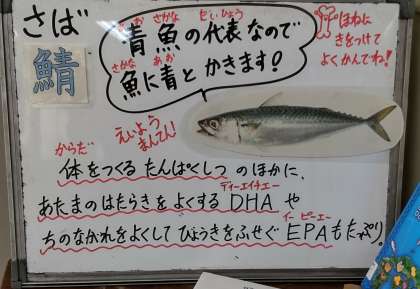 さば
鯖
青魚の代表なので
あお さかな だいひょう
魚に青とかきます!
さかな あお
ほねに
きをつけて
よくかんでね!
えいよう
まんてん!
からだ
体をつくる たんぱくしつ のほかに、
ディーエイチエー
あたまのはたらきをよくする DHA や
イーピーエー
ちのながれをよくして びょうきをふせぐ EPAもたっぷり。